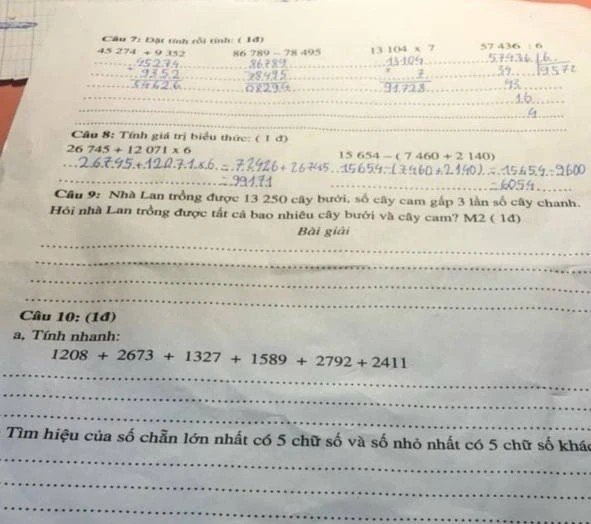 Câu 7: Đặt tính rồi tính: ( 1đ)
45 274 + 9 352 86 789 - 78 495 13 104 x 7 57 436 : 6
45274 86789 13104 57436 6
+ 9352 - 78495 x 7 34 9572
54626 08294 91728 43
16
4
Câu 8: Tính giá trị biểu thức: ( 1 đ)
26 745 + 12 071 x 6 15 654 – ( 7 460 + 2 140)
26745 + 12071 x 6 = 72426 + 26745 15654 - (7460 + 2140) = 15654 - 9600
= 99171 = 6054
Câu 9: Nhà Lan trồng được 13 250 cây bưởi, số cây cam gấp 3 lần số cây chanh.
Hỏi nhà Lan trồng được tất cả bao nhiêu cây bưởi và cây cam? M2 ( 1đ)
Bài giải
Câu 10: (1đ)
a, Tính nhanh:
1208 + 2673 + 1327 + 1589 + 2792 + 2411
Tìm hiệu của số chẵn lớn nhất có 5 chữ số và số nhỏ nhất có 5 chữ số